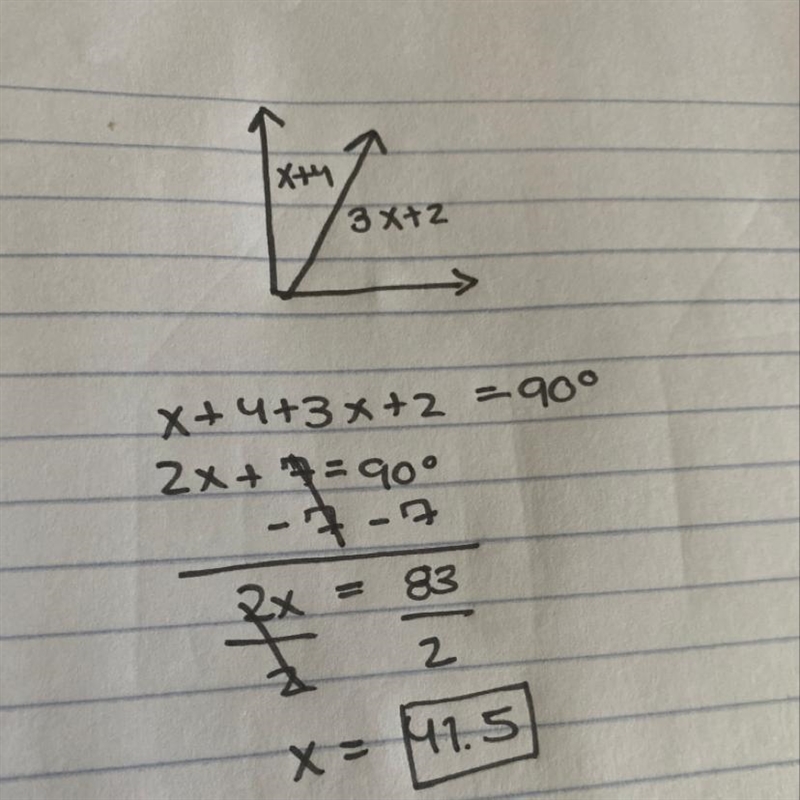 x+4
3x+2
x+4+3x+2 = 90°
2x+7=90°
-7 -7
2x = 83
2 2
x = 41.5